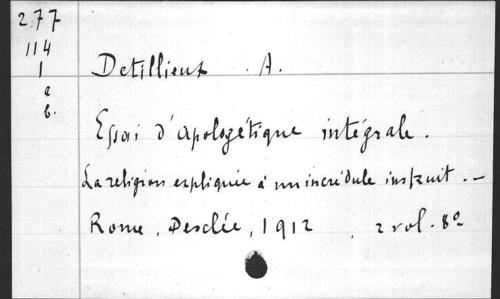 277
114
1
a
b.
Detillieux . A.
Essai d'apologétique intégrale.
La religion expliquée à un incrédule instruit. —
Rome, Desclée, 1912 . 2 vol. 8º